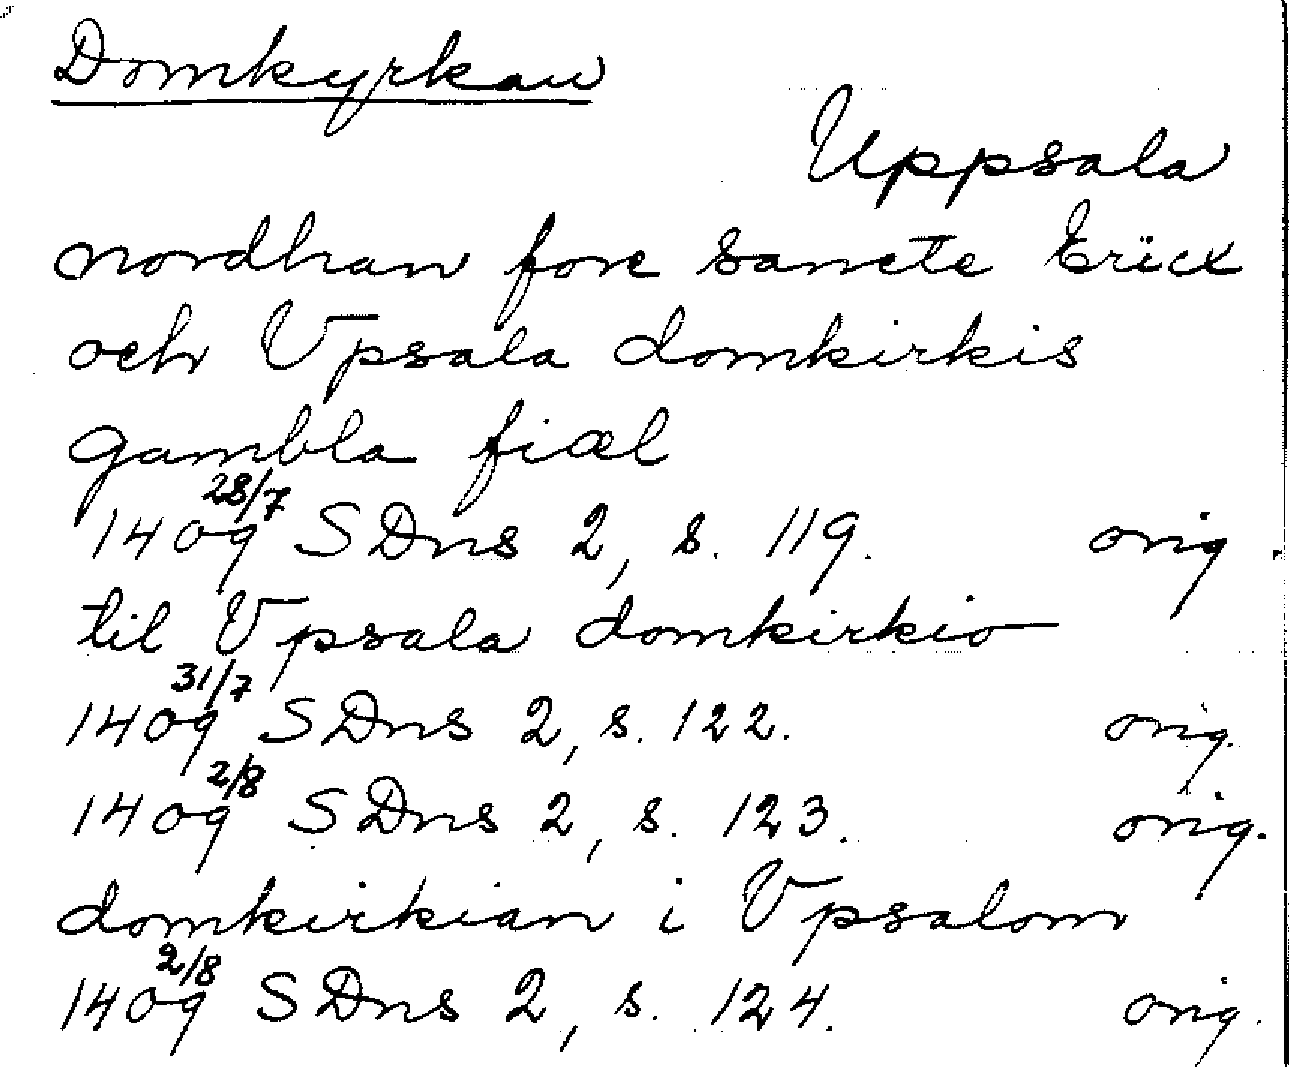 Domkyrkan
Uppsala
nordhan fore sancte Erick
och Vpsala domkirkis
gambla fiæl
1409 28/7 SDns 2, s. 119. orig.
til Vpsala domkirkio
1409 31/7 SDns 2, s. 122. orig.
1409 2/8 SDns 2, s. 123. orig.
domkirkian i Vpsalom
1409 2/8 SDns 2, s. 124. orig.